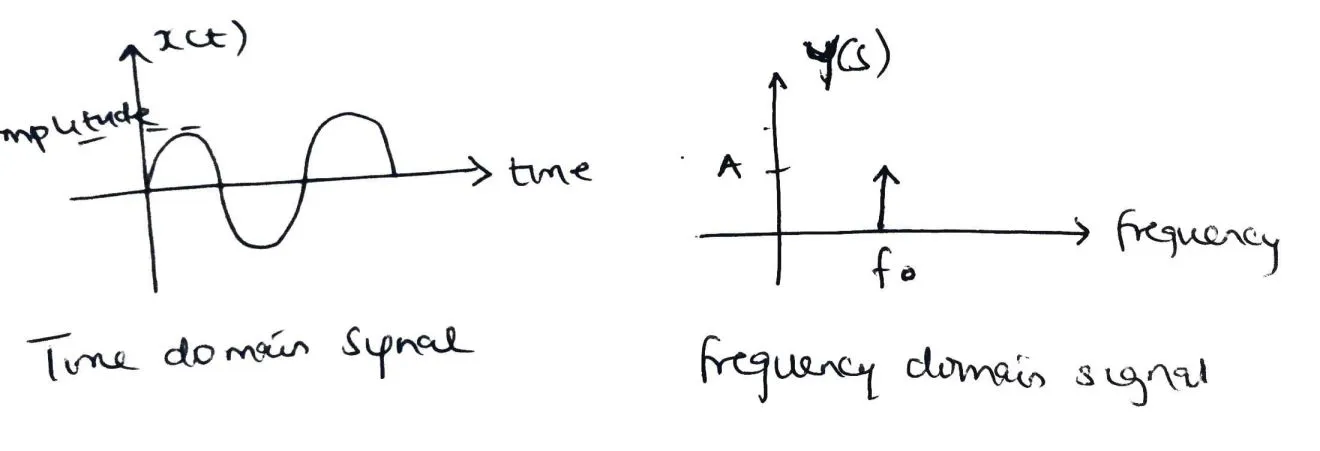 x(t)
mplitude
time
Time domain signal
Y(s)
A
frequency
fo
frequency domain signal